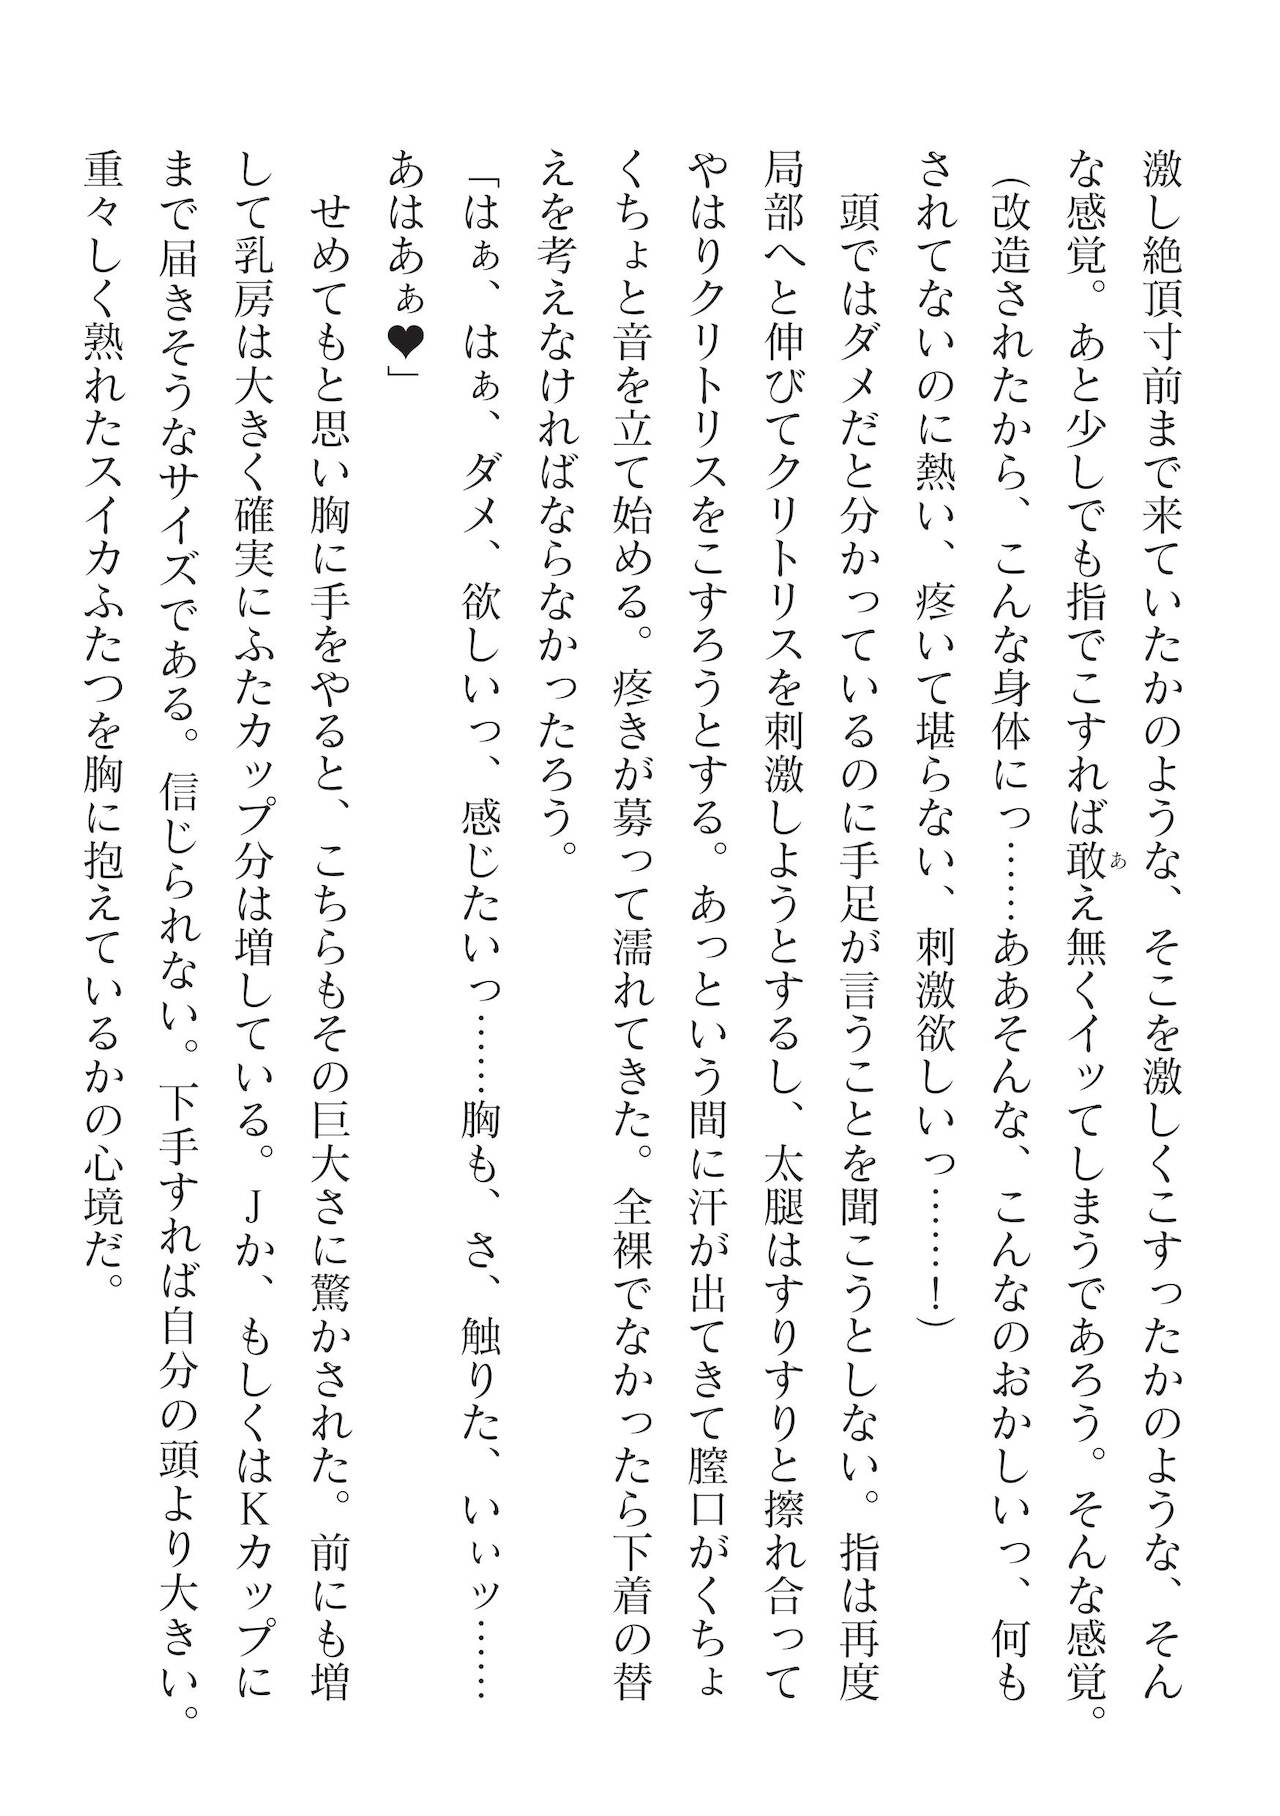 激し絶頂寸前まで来ていたかのような、そこを激しくこすったかのような、そん
な感覚。あと少しでも指でこすれば敢え無くイッてしまうであろう。そんな感覚。
あ
(改造されたから、こんな身体にっ……ああそんな、こんなのおかしいっ、何も
されてないのに熱い、疼いて堪らない、刺激欲しいっ……！)
頭ではダメだと分かっているのに手足が言うことを聞こうとしない。指は再度
局部へと伸びてクリトリスを刺激しようとするし、太腿はすりすりと擦れ合って
やはりクリトリスをこすろうとする。あっという間に汗が出てきて膣口がくちょ
くちょと音を立て始める。疼きが募って濡れてきた。全裸でなかったら下着の替
えを考えなければならなかったろう。
「はぁ、はぁ、ダメ、欲しいっ、感じたいっ……胸も、さ、触りた、いぃッ……
あはあぁ♥」
せめてもと思い胸に手をやると、こちらもその巨大さに驚かされた。前にも増
して乳房は大きく確実にふたカップ分は増している。Jか、もしくはKカップに
まで届きそうなサイズである。信じられない。下手すれば自分の頭より大きい。
重々しく熟れたスイカふたつを胸に抱えているかの心境だ。